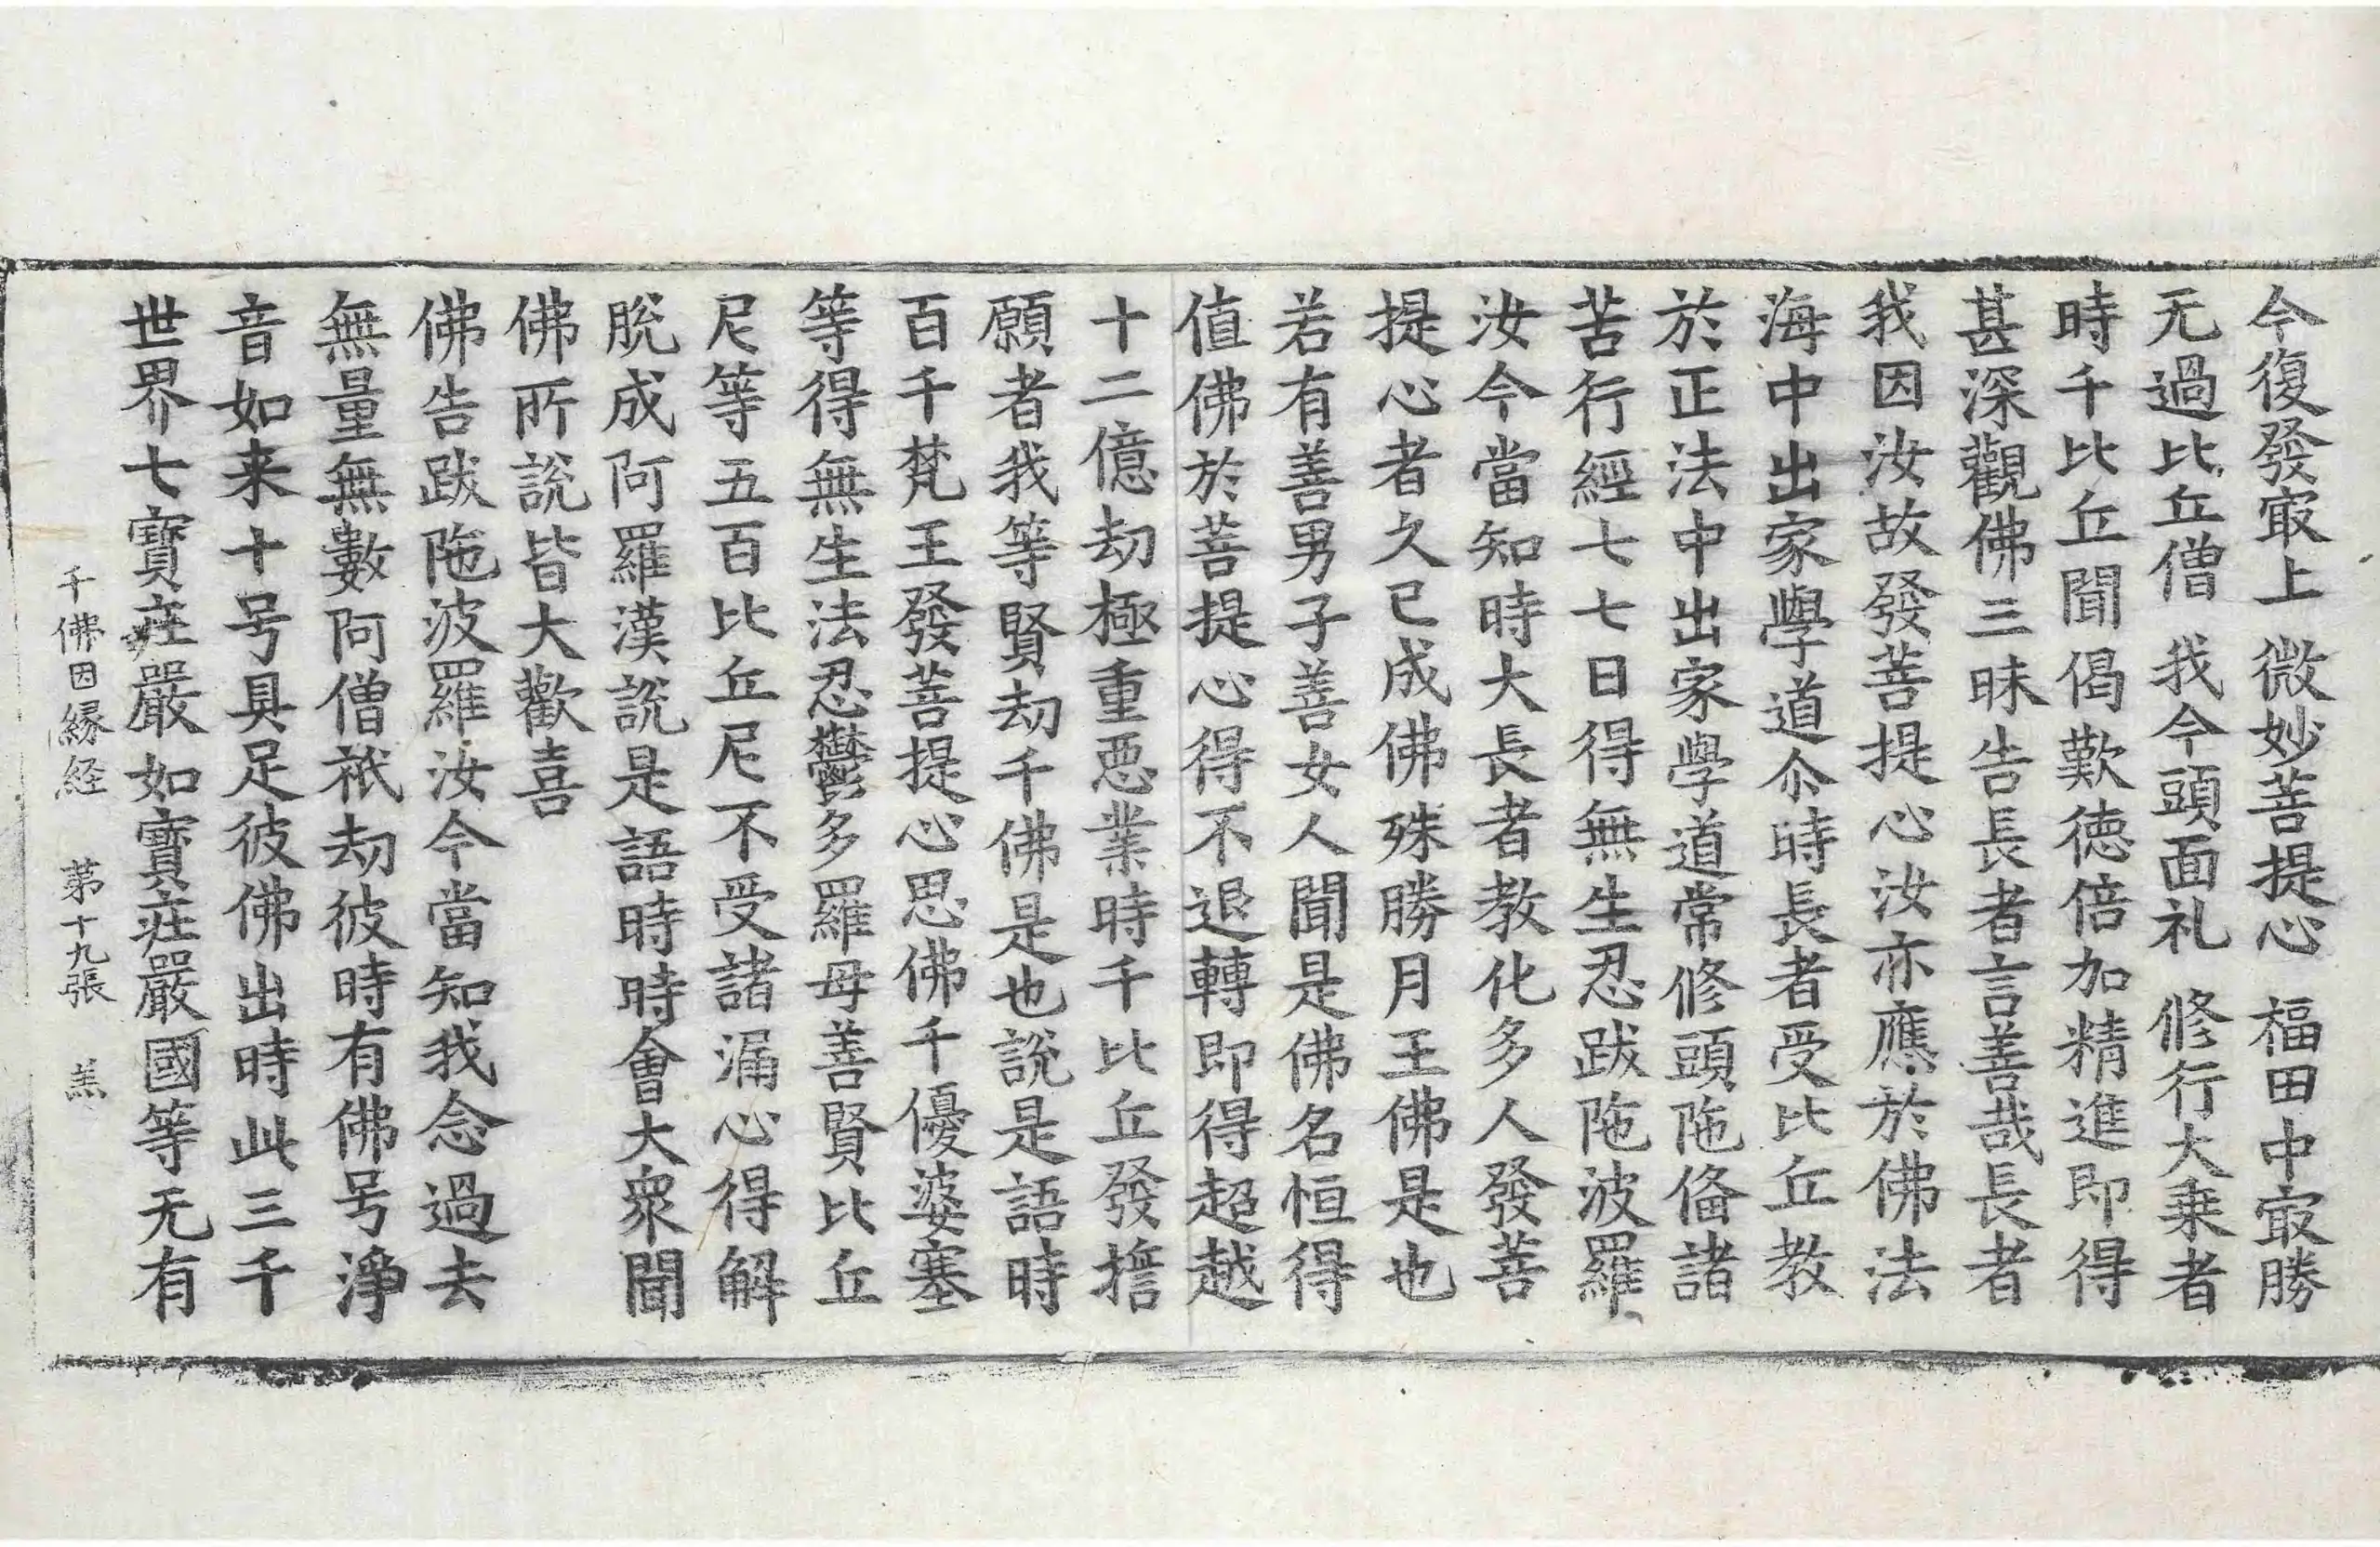 今復發㝡上　微妙菩提心　福田中㝡勝
无過比丘僧　我今頭面礼　修行大乗者
時千比丘聞偈歎德倍加精進即得
甚深觀佛三昧告長者言善哉長者
我因汝故發菩提心汝亦應於佛法
海中出家學道尒時長者受比丘教
於正法中出家學道常修頭陁俻諸
苦行經七七日得無生忍跋陁波羅
汝今當知時大長者教化多人發菩
提心者久已成佛殊勝月王佛是也
若有善男子善女人聞是佛名恒得
值佛於菩提心得不退轉即得超越
十二億劫極重惡業時千比丘發㨷
願者我等賢劫千佛是也說是語時
百千梵王發菩提心思佛千優婆塞
等得無生法忍欝多羅母善賢比丘
尼等五百比丘尼不受諸漏心得解
脫成阿羅漢說是語時時會大衆聞
佛所說皆大歡喜
佛告跋陁波羅汝今當知我念過去
無量無數阿僧祇劫彼時有佛号淨
音如来十号具足彼佛出時此三千
世界七寶莊嚴如寶莊嚴國等无有
千佛因縁経　苐十九張　羔